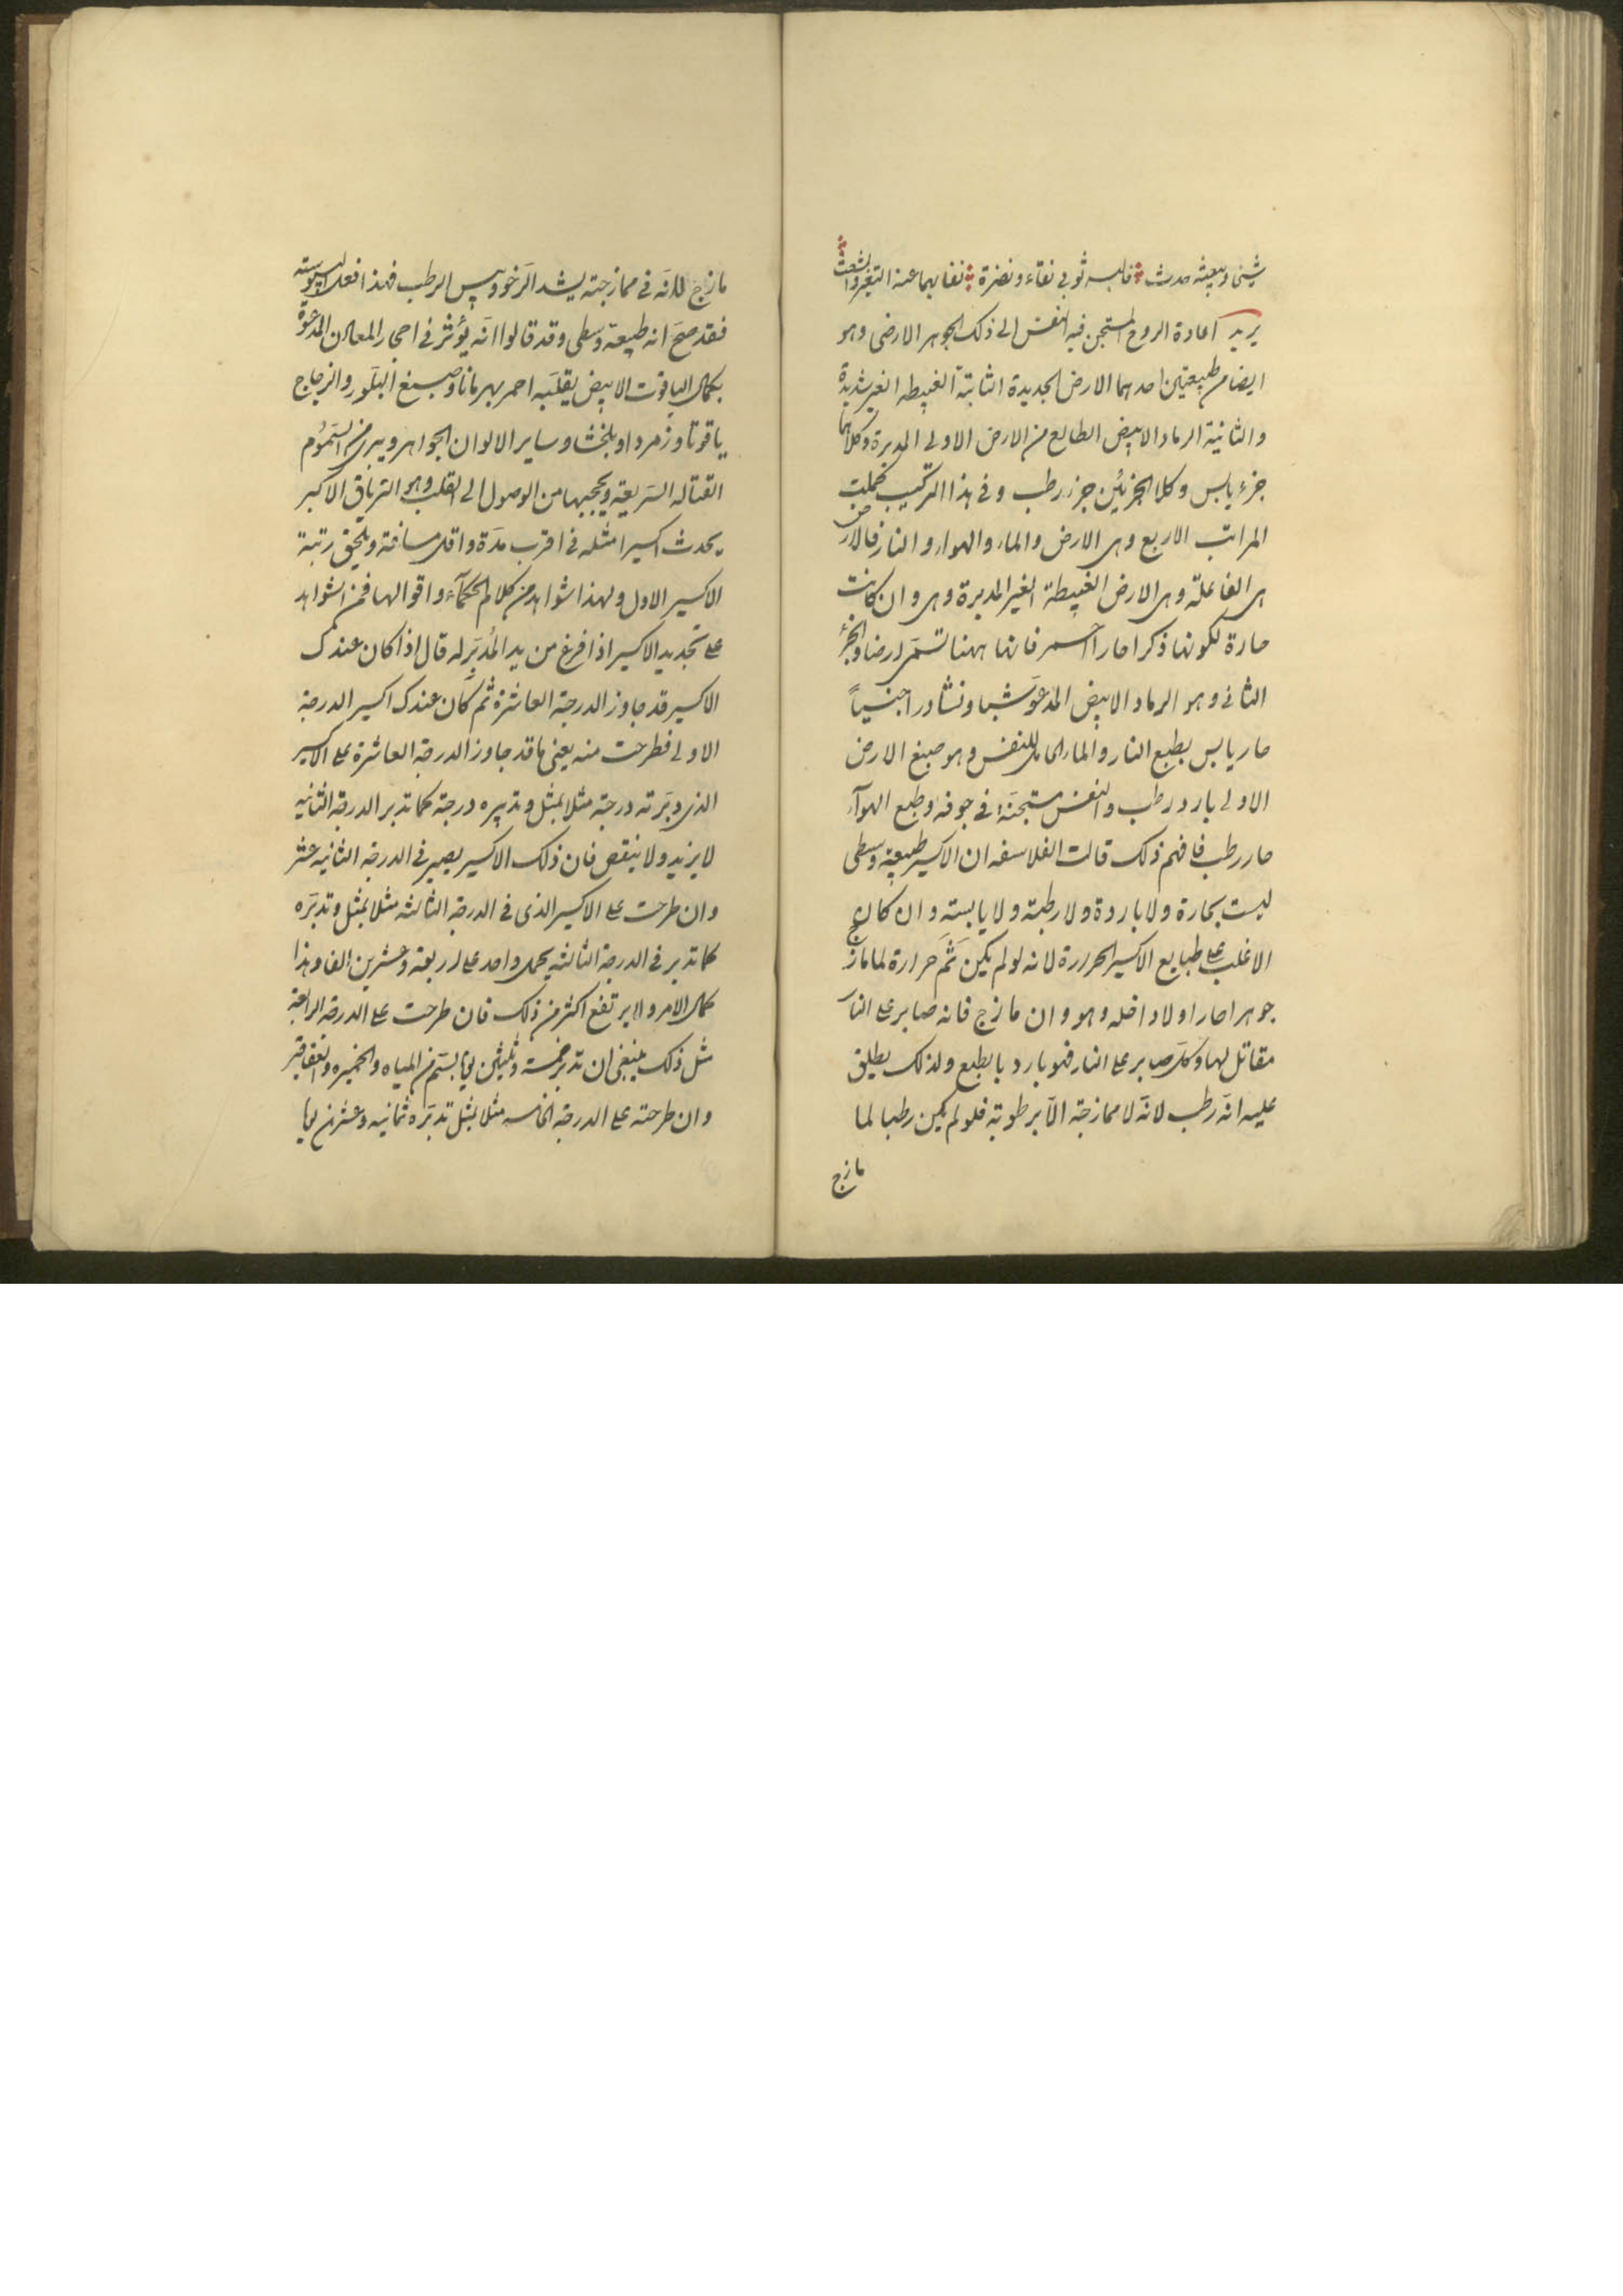 شيئ وبيعثه حدث فالبسه ثوبي نقاء ونضرة نفا بهما عنه التغير والشعث
يريد اعادة الروح المستجن فيه النفس الى ذلك الجوهر الارضي وهو
ايضا من طبيعتين احدهما الارض الجديدة الثابتة الغبيطه الغير
والثانية الرماد الابيض الطالع من الارض الاولى المدبرة وكلاهما
جزء يابس وكلا الجزئين جزء رطب وفي هذا التركيب كملت
المراتب الاربع وهي الارض والماء والهواء والنار فالارض
هي الفاعلة وهي الارض الغبيطة الغير المدبرة وهي وان كانت
حارة لكونها ذكرا حارا احمر فانها ههنا تسمى ارضا والجزء
الثاني وهو الرماد الابيض المدعو شبا ونشادرا جنسياً
حار يابس بطبع النار والماء الحامل للنفس وهو صبغ الارض
الاولى بارد رطب والنفس مستجنة في جوفه وطبع الهوآء
حار رطب فافهم ذلك قالت الفلاسفه ان الاكسير طبيعة وسطى
ليست بحارة ولا باردة ولا رطبة ولا يابسته وان كان
الاغلب على طبايع الاكسير الحرارة لانه لو لم يكن ثَم حرارة لما مازج
جوهرا حارا ولا داخله وهو وان مازج فانه صابر على النار
مقاتل لها وكل صابر على النار فهو بارد بالطبع ولذلك يطلق
عليه انه رطب لانه لا ممازجة الا برطوبة فلو لم يكن رطبا لما
مازج
مازج للانه في ممازجته يشد الرخو ويبس الرطب فهذا فعل اليبوسته
فقد صح انه طبيعة وسطى وقد قالوا انه يؤثر في احجار المعادن المدعوة
بكمال الياقوت الابيض يقلبه احمر بهرمانا ويصبغ البلور والزجاج
ياقوتا وزمردا وبلخشا وساير الالوان الجواهر ويبرئ من السموم
القتاله السريعة ويحجبها من الوصول الى القلب وهو الترياق الاكبر
يحدث اكسيرا مثله في اقرب مدة واقل مسافة ويلحق رتبة
الاكسير الاول ولهذا شواهد من كلام الحكمآء واقوالها فمن الشواهد
على تجديد الاكسير اذا فرغ من يد المُدَبِّر له قال اذا كان عندك
الاكسير قد جاوز الدرجة العاشرة ثم كان عندك اكسير الدرجة
الاولى فطرحت منه يعني ما قد جاوز الدرجة العاشرة على الاكسير
الذي دبرته درجة مثلا بمثل وتدبيره درجة كما تدبر الدرجة الثانيه
لا يزيد ولا ينقص فان ذلك الاكسير يصير في الدرجة الثانيه عشر
وان طرحت على الاكسير الذي في الدرجة الثالثه مثلا بمثل وتدبره
كما تدبر في الدرجة الثالثه يحمل واحد على اربعة وعشرين الفا وهذا
كمال الامر ولا يرتفع اكثر من ذلك فان طرحت على الدرجة الرابعة
مثل ذلك فينبغي ان تدبر خمسة وثلثين يوما بستم من المياه والخميره والعقاقير
وان طرحته على الدرجة الخامسه مثلا بمثل تدبره ثمانيه وعشرين يوما